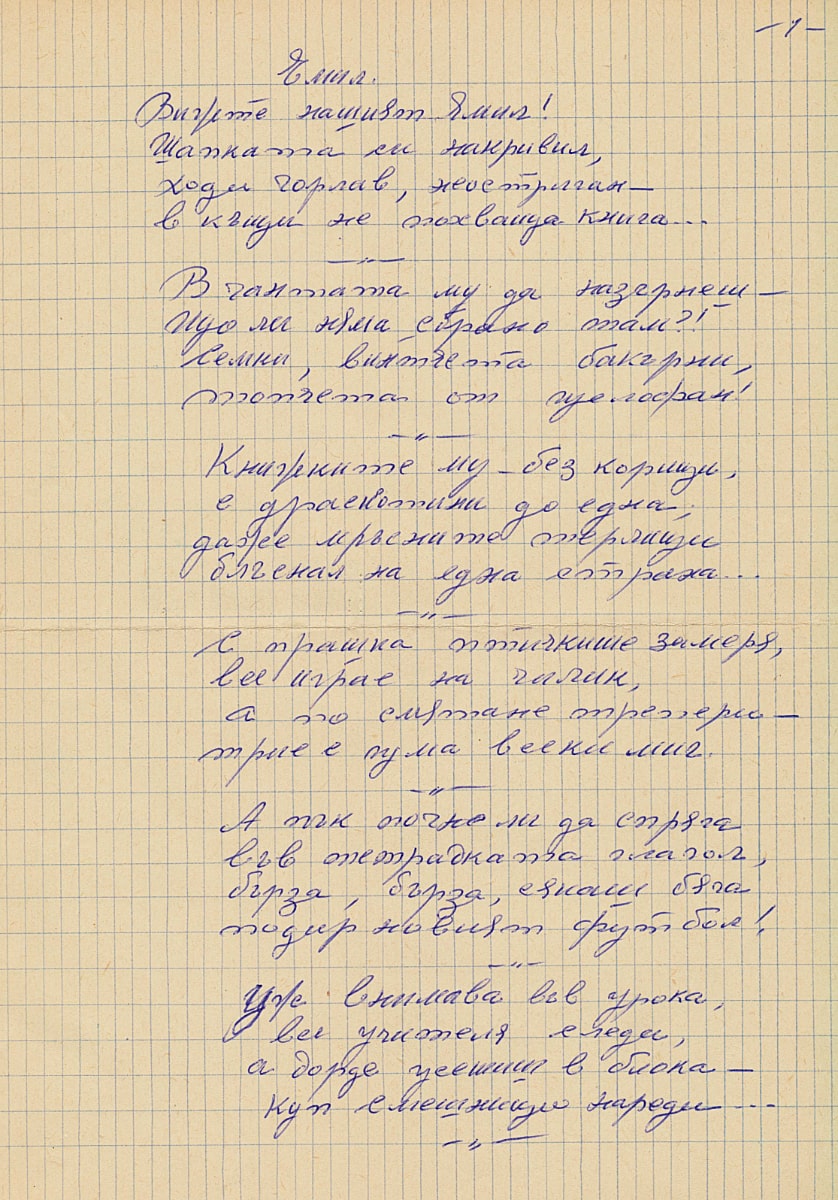 – 1 –
Емил.
Вижте нашият Емил!
Шапката си накривил,
ходи чорлав, неостриган –
в къщи не похваща книга...
– " –
В чантата му да надзърнеш –
що ли няма сбрано там?!
Семки, винтчета бакърни,
топчета от целофан!
– " –
Книжките му – без корици,
с драскотини до една;
даже мръсните терлици
блъснал на една страна...
– " –
С прашка птичките замеря,
все играе на чилик,
а по смятане трепери –
трие с гума всеки миг.
– " –
А пък почне ли да спряга
във тетрадката глагол,
бърза, бърза, сякаш бяга
подир новият футбол!
– " –
Уж внимава във урока,
все учителя следи,
а дорде усетиш в блока –
куп смешници нареди...
– " –